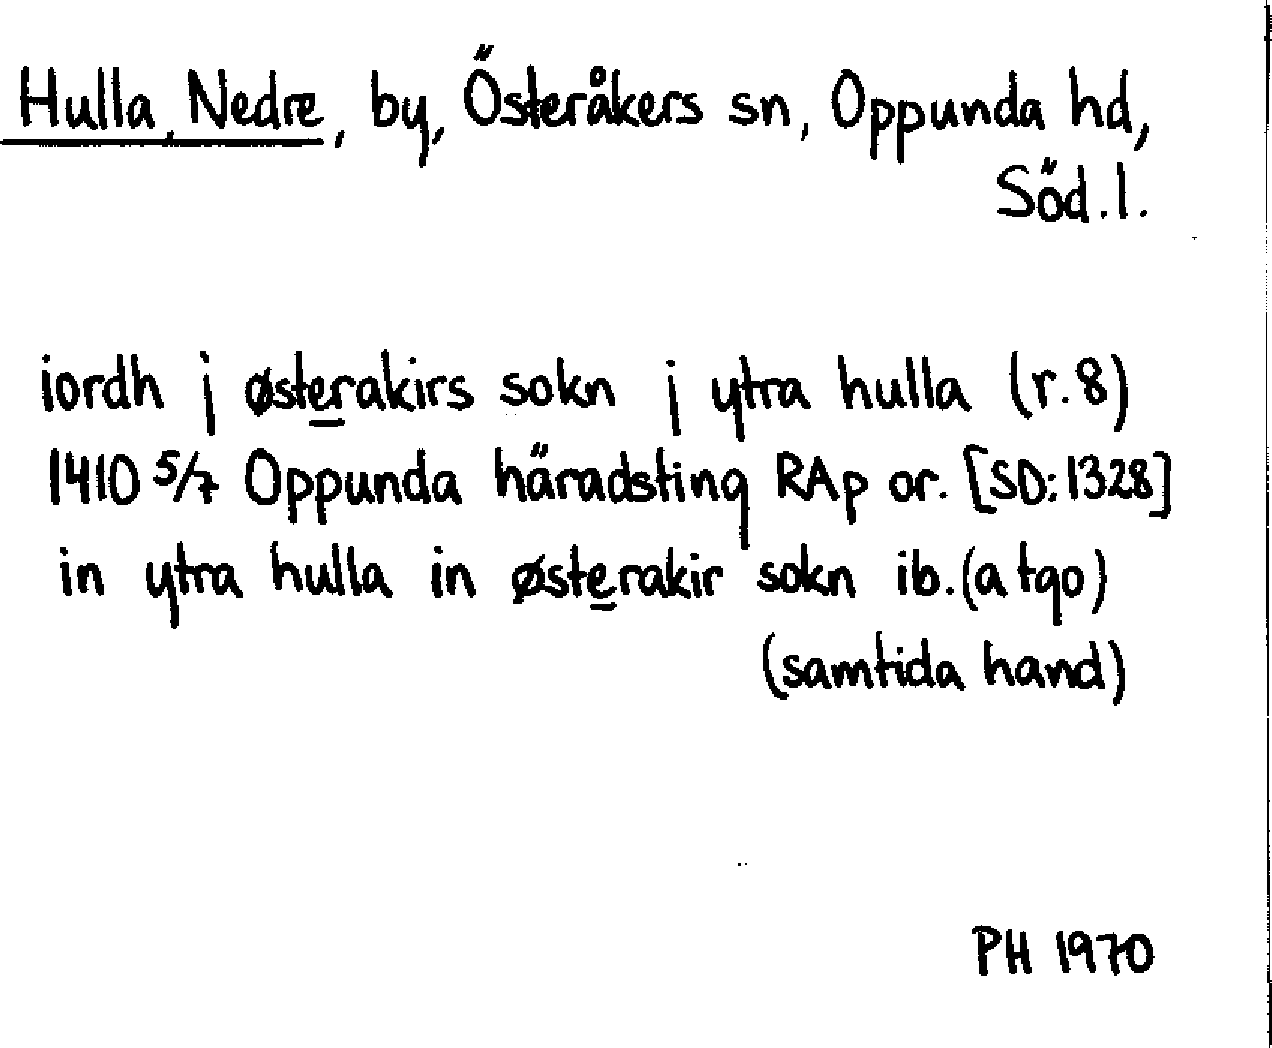 Hulla, Nedre, by, Österåkers sn, Oppunda hd,
Söd.l.
iordh j østerakirs sokn j ytra hulla (r.8)
1410 5/7 Oppunda häradsting RAp or. [SD:1328]
in ytra hulla in østerakir sokn ib. (a tgo)
(samtida hand)
PH 1970